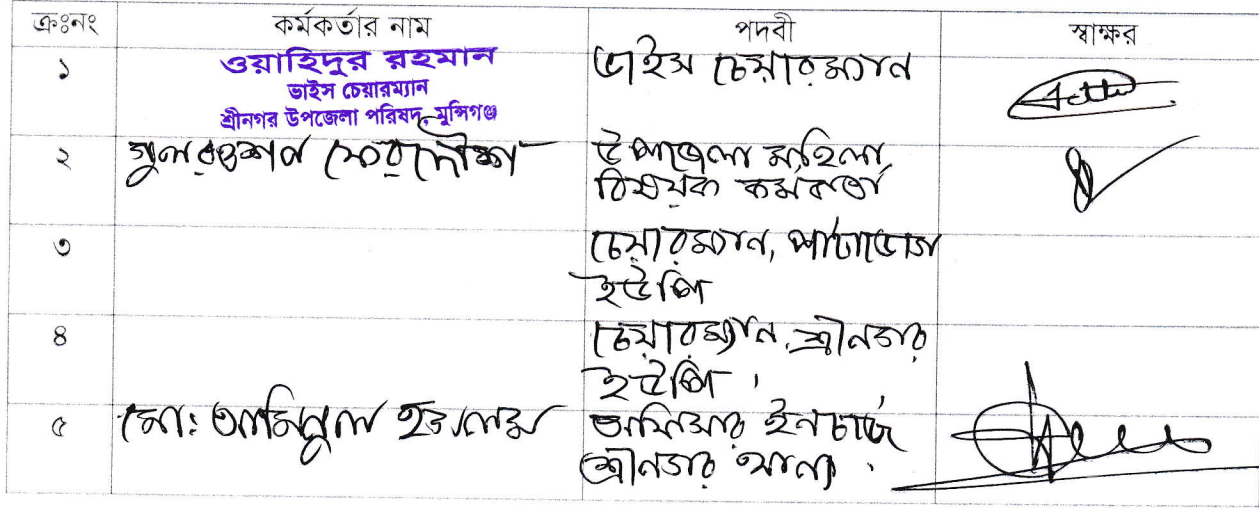 ক্রঃনং কর্মকর্তার নাম পদবী স্বাক্ষর
১ ওয়াহিদুর রহমান ভাইস চেয়ারম্যান
ভাইস চেয়ারম্যান
শ্রীনগর উপজেলা পরিষদ, মুন্সিগঞ্জ
২ গুলরওশন ফেরদৌস উপজেলা মহিলা
বিষয়ক কর্মকর্তা
৩ চেয়ারম্যান, পাটাভোগ
ইউপি
৪ চেয়ারম্যান, শ্রীনগর
ইউপি।
৫ মো: আমিনুল ইসলাম অফিসার ইনচার্জ
শ্রীনগর থানা।